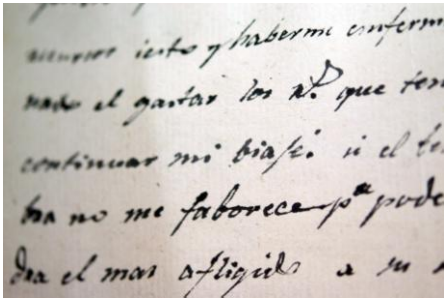 y haberme enferm
nado el gastar los rs. que ten
continuar mi biaje. si el
bra no me faborece pa. pode
dra el mas afligido a su